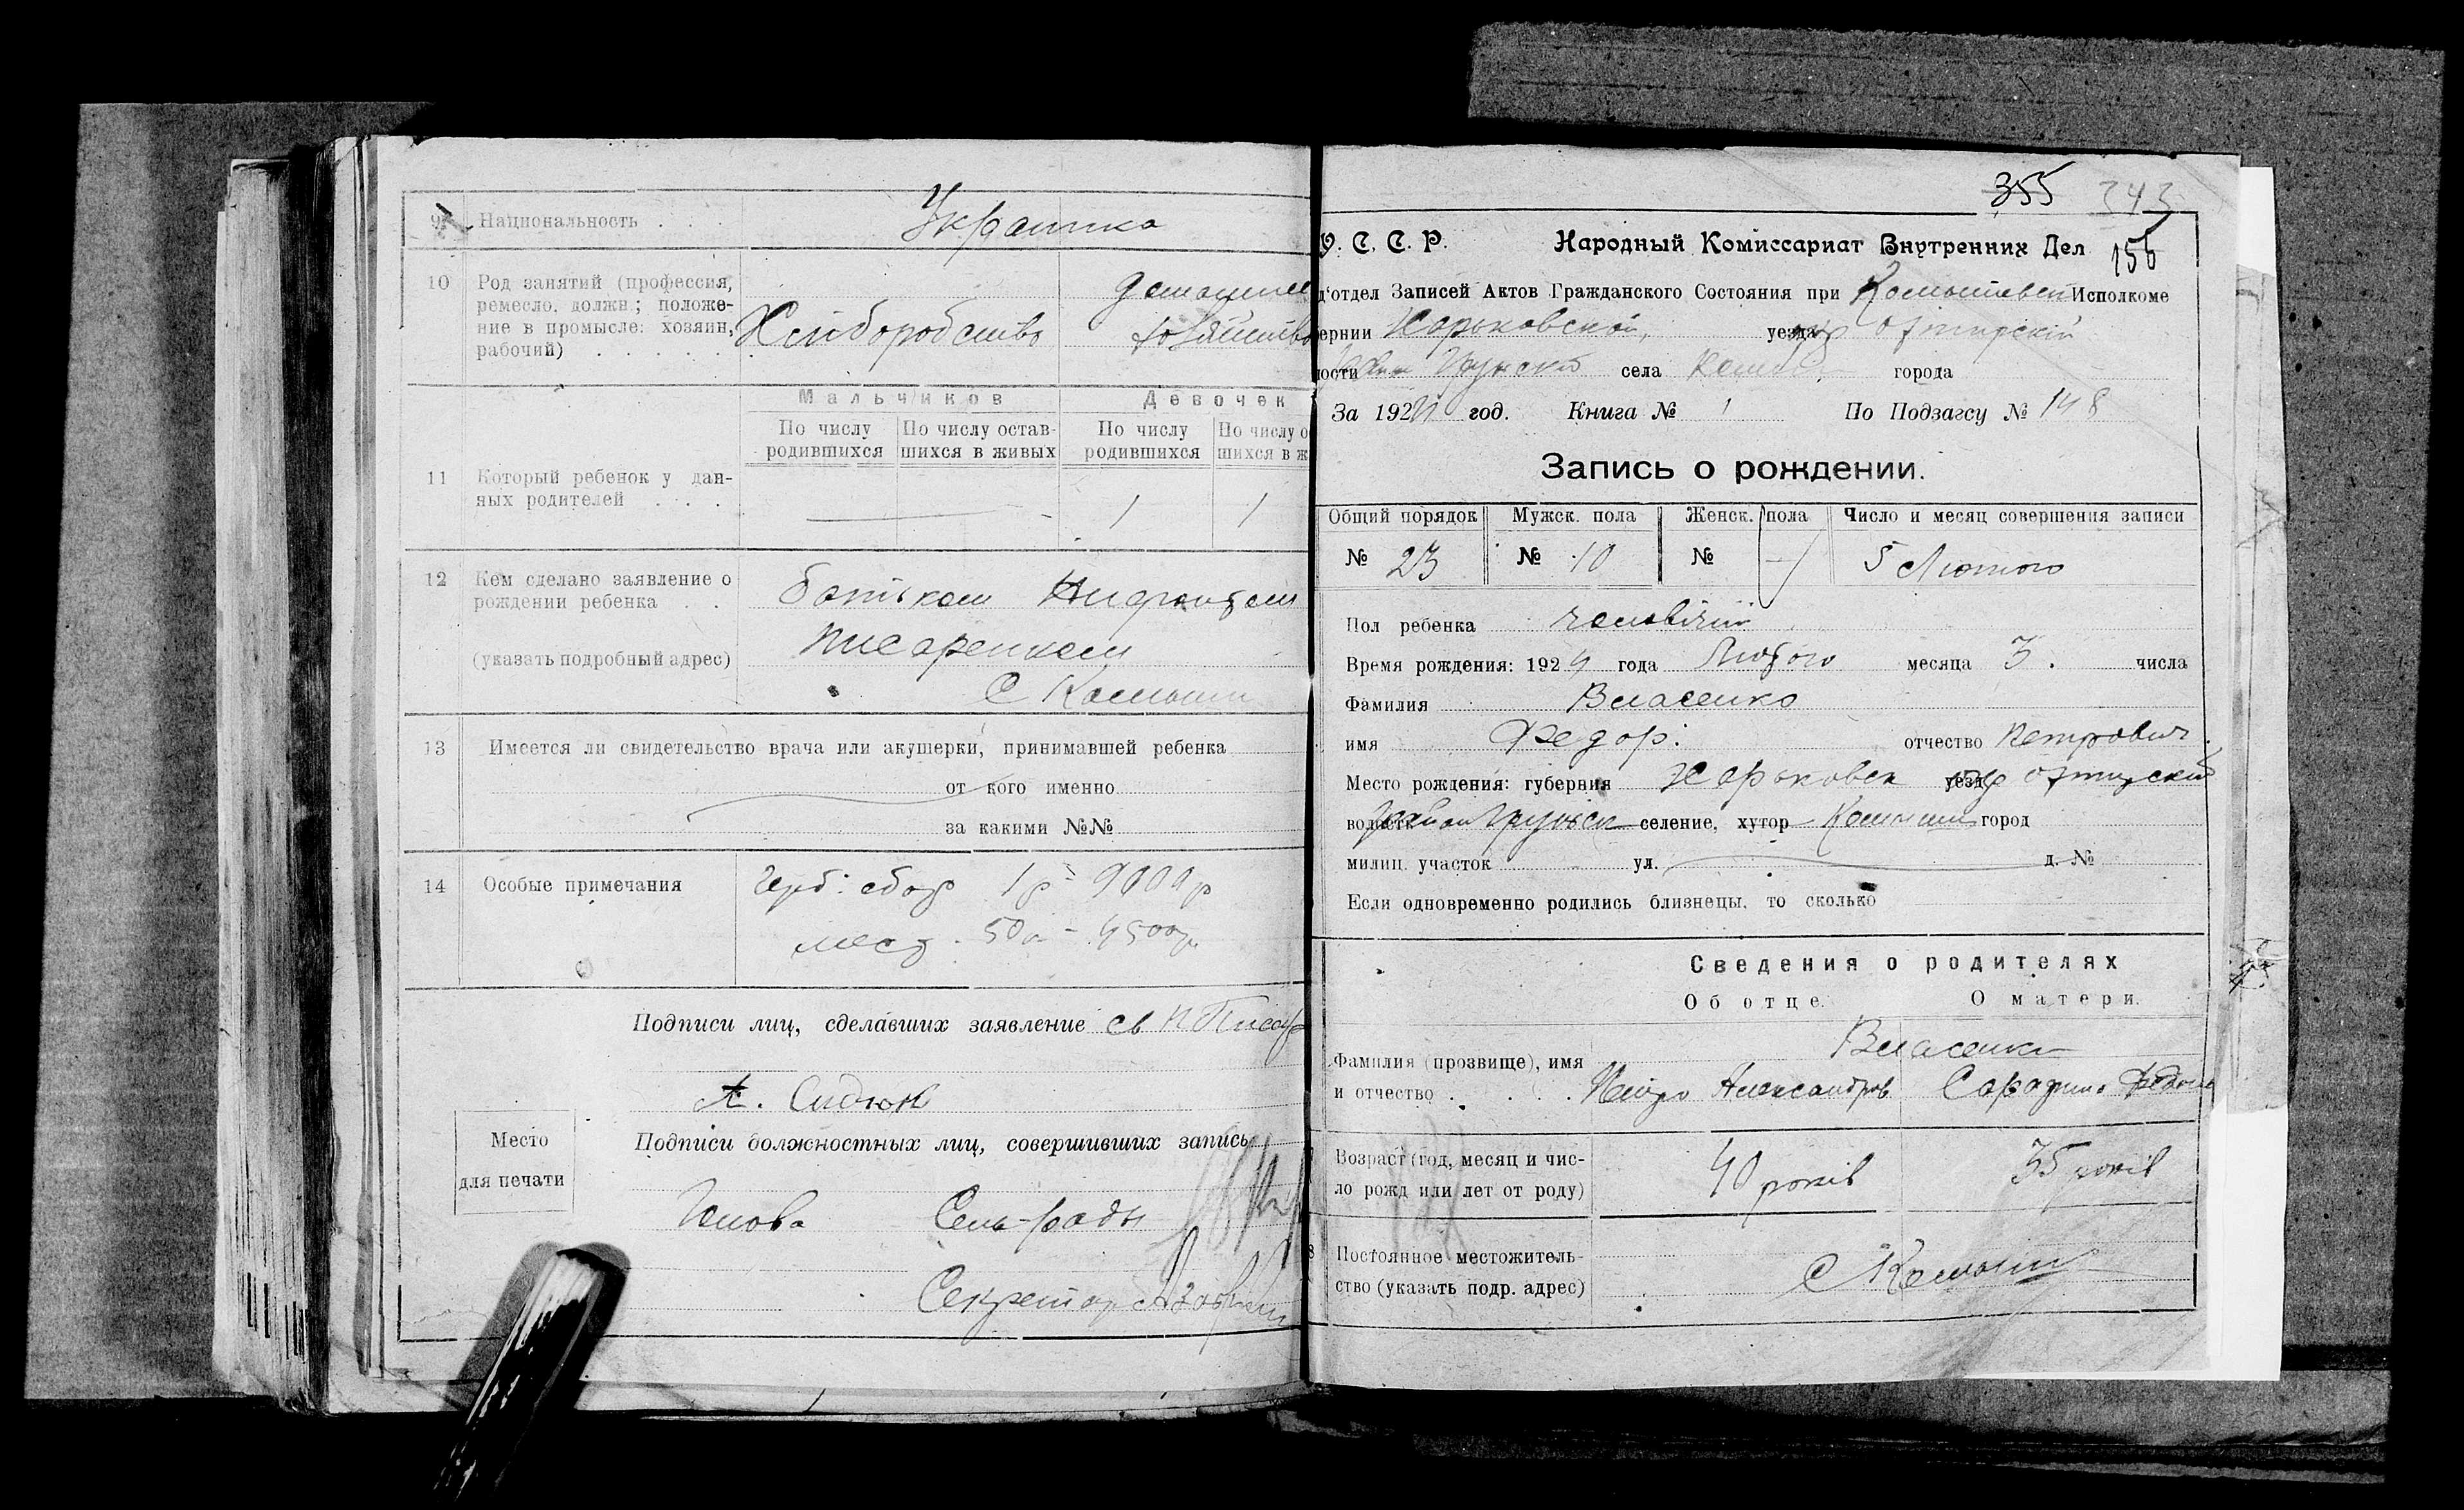 9 Национальность Украинка
10 Род занятий (профессия,
ремесло, должн.; положе-
ние в промысле: хозяин,
рабочий)
Хліборобство
домашнее
хозяйство
Мальчиков Девочек
По числу родившихся По числу остав-шихся в живых По числу родившихся По числу о шихся в ж
11 Который ребенок у дан-
ных родителей
1 1
12 Кем сделано заявление о
рождении ребенка
батьком
(указать подробный адрес) Писаренком
С Комыши
13 Имеется ли свидетельство врача или акушерки, принимавшей ребенка
от кого именно
за какими №№
14 Особые примечания Герб: сбор 1 р - 9000 р
мест. 50 к - 4500 р
Подписи лиц, сделавших заявление
А. Сидюк
Место
для печати
Подписи должностных лиц, совершивших запись
Голова Сель-рады
Секретар
355 343
У. С. С. Р. Народный Комиссариат Внутренних Дел 156
д‘отдел Записей Актов Гражданского Состояния при Исполкоме
ернии Харьковской, уезда
ости села города
За 1924 год. Книга № 1 По Подзагсу № 148
Запись о рождении.
Общий порядок Мужск. пола Женск. пола Число и месяц совершения записи
№ 23 № 10 № — 5 Лютого
Пол ребенка чоловічий
Время рождения: 1924 года Лютого месяца 3. числа
Фамилия Власенко
имя Федор. отчество Петрович.
Место рождения: губерния Харьковск уезд
волость район Груньск селение, хутор Комыши город
милиц. участок ул. д. №
Если одновременно родились близнецы, то сколько
Сведения о родителях
Об отце. О матери.
Власенки
Фамилия (прозвище), имя
и отчество Петро Александров.
Возраст (год, месяц и чис-
ло рожд или лет от роду) 40 років 35 років
8 Постоянное местожитель-
ство (указать подр. адрес) С Комыши